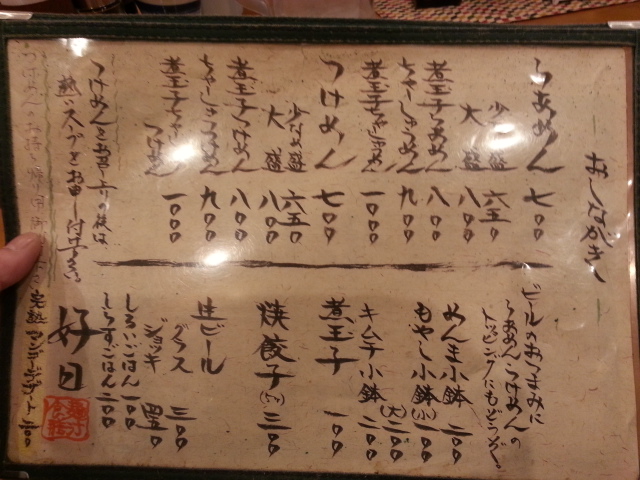 おしながき
らあめん 七〇〇
少な盛 六五〇
大盛 八〇〇
煮玉子らあめん 八〇〇
ちゃーしゅうめん 九〇〇
煮玉子ちゃーしゅうめん 一〇〇〇
つけめん 七〇〇
少なめ盛 六五〇
大盛 八〇〇
煮玉子つけめん 八〇〇
ちゃーしゅうつけめん 九〇〇
煮玉子ちゃーしゅう
つけめん 一〇〇〇
つけめんをお召し上りの後は
熱いスープをお申し付け下さい。
ビールのおつまみに
らあめん、つけめんの
トッピングにもどうぞ。
めんま小鉢 二〇〇
もやし小鉢(小) 一〇〇
(大) 二〇〇
キムチ小鉢 二〇〇
煮玉子 一〇〇
焼餃子(六) 三〇〇
生ビール
グラス 三〇〇
ジョッキ 四五〇
しろいごはん 一〇〇
しらすごはん 二〇〇
好日
完熟マンゴーデザート 二〇〇